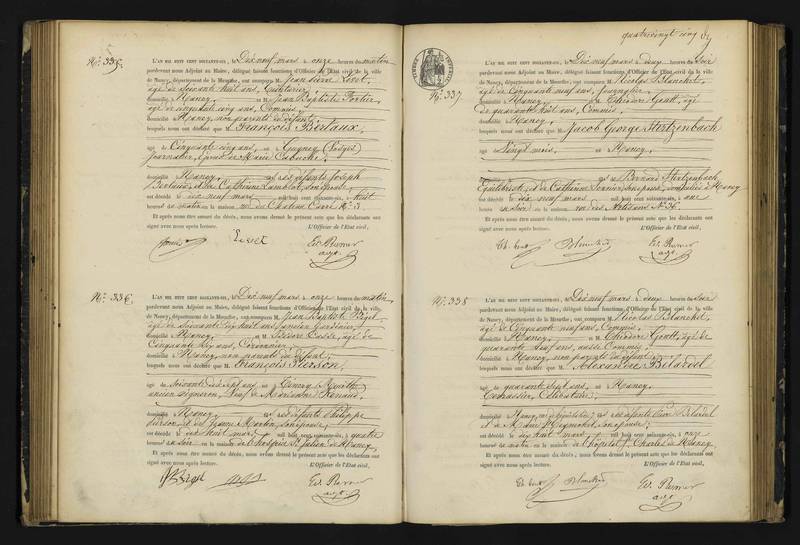 N° 335.
L'AN MIL HUIT CENT SOIXANTE-SIX, le Dix neuf mars à onze heures du matin
pardevant nous Adjoint au Maire, délégué faisant fonctions d'Officier de l'Etat civil de la ville
de Nancy, département de la Meurthe, ont comparu M. Jean Pierre
âgé de soixante huit ans,
domicilié à Nancy, et M. Jean Baptiste Fortier,
âgé de cinquante cinq ans, Commis
domicilié à Nancy, non parents du défunt,
lesquels nous ont déclaré que M. François Bertaux,
âgé de Cinquante cinq ans, né à Gugney (Vosges)
Journalier, époux de Marie
domicilié à Nancy, fils des défunts Joseph
Bertaux et de Catherine son épouse,
est décédé le dix neuf mars mil huit cent soixante-six, à huit
heures du matin en la maison rue du Château Carré N° 3
Et après nous être assuré du décès, nous avons dressé le présent acte que les déclarants ont
signé avec nous après lecture. L'Officier de l'Etat civil,
N° 336.
L'AN MIL HUIT CENT SOIXANTE-SIX, le Dix neuf mars à onze heures du matin,
pardevant nous Adjoint au Maire, délégué faisant fonctions d'Officier de l'Etat civil de la ville
de Nancy, département de la Meurthe, ont comparu M. Jean Baptiste
âgé de soixante dix huit ans, ancien Jardinier,
domicilié à Nancy, et M.
Cinquante six ans, Cordonnier
domicilié à Nancy, non parents du défunt,
lesquels nous ont déclaré que M. François Pierson,
âgé de Soixante dix sept ans, né à (Meurthe)
ancien vigneron, veuf de Marianne
domicilié à Nancy, fils des défunts Philippe
Pierson, et de Jeanne son épouse,
est décédé le dix huit mars mil huit cent soixante-six, à quatre
heures du soir en la maison de l'hospice St Julien de Nancy,
Et après nous être assuré du décès, nous avons dressé le présent acte que les déclarants ont
signé avec nous après lecture. L'Officier de l'Etat civil,
quatrevingt cinq
N° 337
L'AN MIL HUIT CENT SOIXANTE-SIX, le Dix neuf mars à deux heures du soir
pardevant nous Adjoint au Maire, délégué faisant fonctions d'Officier de l'Etat civil de la ville
de Nancy, département de la Meurthe, ont comparu M. Nicolas Blanchet,
âgé de Cinquante neuf ans,
domicilié à Nancy, et M. Théodore âgé
de quarante huit ans, Commis,
domicilié à Nancy
lesquels nous ont déclaré que M. Jacob George Stertzenbach
âgé de Vingt mois, né à Nancy,
fils de Bernard Stertzenbach
et de Catherine son épouse, domiciliés à Nancy
est décédé le dix neuf mars mil huit cent soixante-six, à une
heure en la maison rue des Artisans N° 36
Et après nous être assuré du décès, nous avons dressé le présent acte que les déclarants ont
signé avec nous après lecture. L'Officier de l'Etat civil,
N° 338
L'AN MIL HUIT CENT SOIXANTE-SIX, le Dix neuf mars à deux heures du soir
pardevant nous Adjoint au Maire, délégué faisant fonctions d'Officier de l'Etat civil de la ville
de Nancy, département de la Meurthe, ont comparu M. Nicolas Blanchet,
âgé de Cinquante neuf ans, Commis,
domicilié à Nancy, et M. Théodore âgé de
quarante huit ans, aussi Commis
domicilié à Nancy, non parents du défunt,
lesquels nous ont déclaré que M. Alexandre
âgé de quarante sept ans, né à Nancy,
Terrassier, Célibataire,
domicilié à Nancy, fils des défunts
et de Marie son épouse,
est décédé le dix huit mars mil huit cent soixante-six, à onze
heures du matin en la maison de l'hôpital St Charles de Nancy
Et après nous être assuré du décès, nous avons dressé le présent acte que les déclarants ont
signé avec nous après lecture. L'Officier de l'Etat civil,